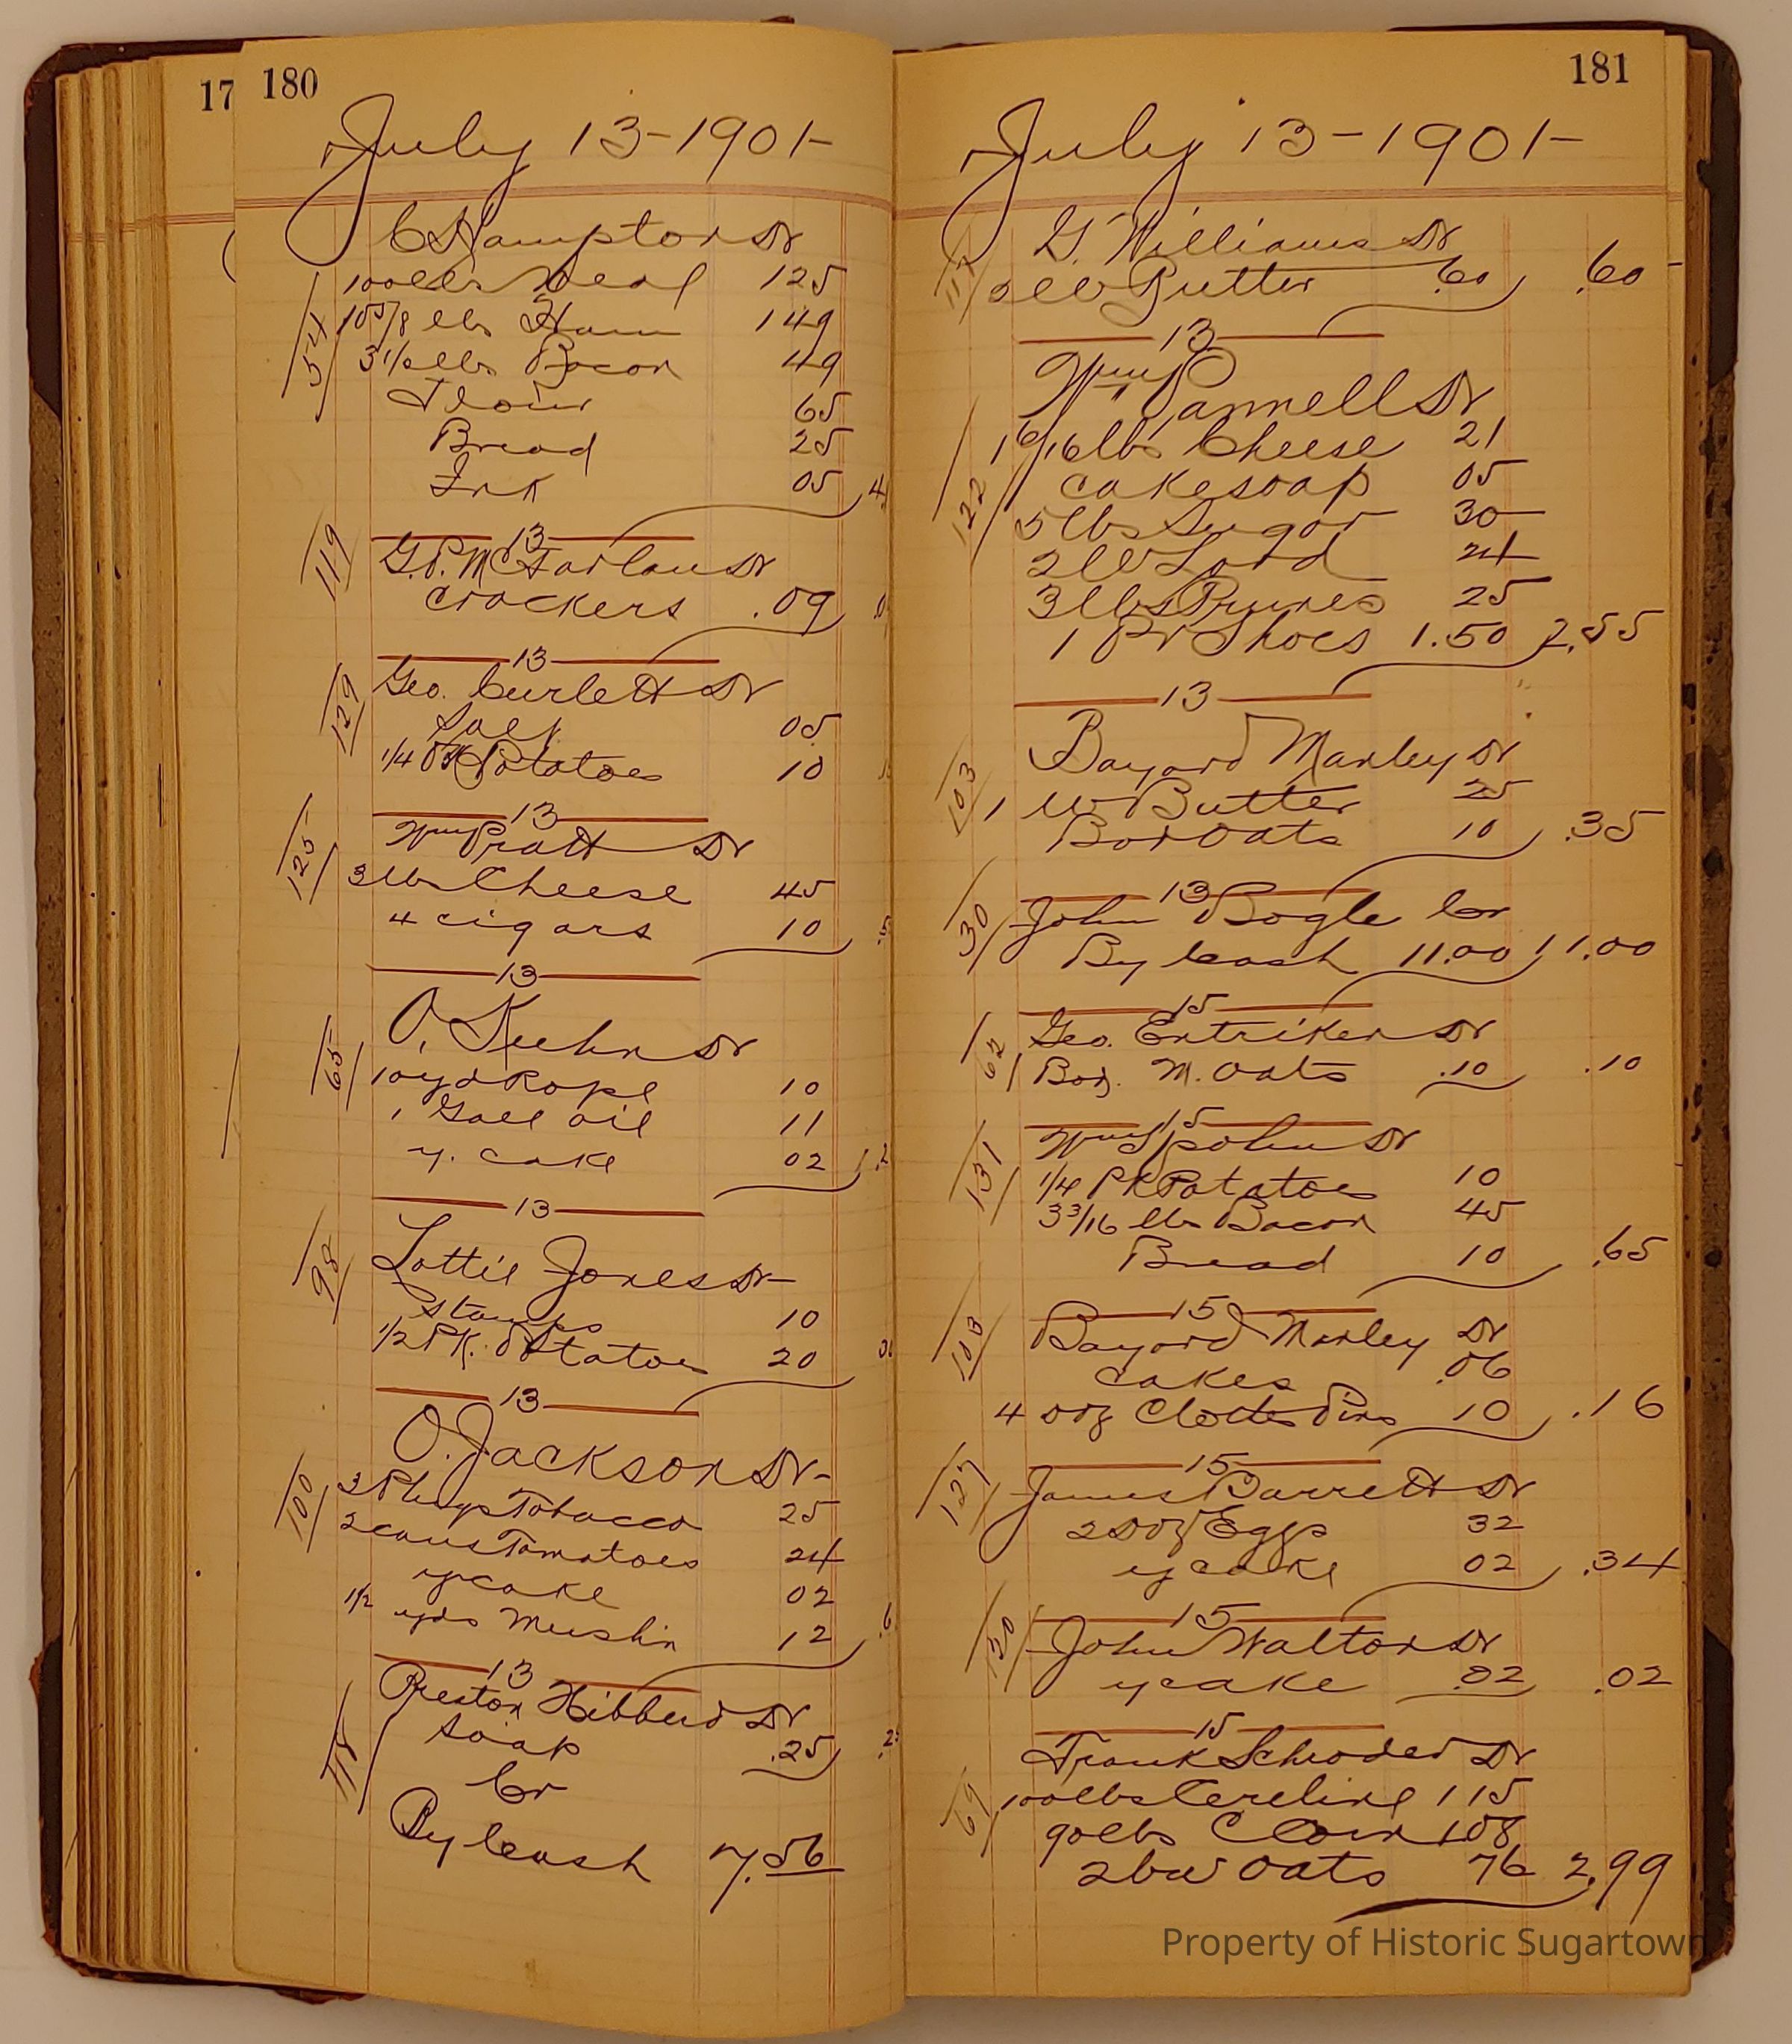 17
180
July 13-1901-
C Hampton Dr
54
100 lbs Meal 125
10 5/8 lbs Ham 149
3 1/2 lbs Bacon 49
Flour 65
Bread 25
Ink 05 4
13
119
G.P. McFarlan Dr
crackers .09
13
129
Geo. Curlett Dr
Salt 05
1/4 Pk Potatoes 10
13
125
Wm Pratt Dr
3 lbs Cheese 45
4 cigars 10 .5
13
65
O, Kuhn Dr
10 yd Rope 10
1 Gall oil 11
y. cake 02 .2
13
98
Lottie Jones Dr-
Stamps 10
1/2 PK. Potatoes 20
13
100
O. Jackson Dr-
3 Plugs Tobacco 25
2 cans Tomatoes 24
y cake 02
1 1/2 yds Muslin 12 .6
13
118
Preston Hibberd Dr
Soap .25 .2
Cr
By Cash 7.56
181
July 13-1901-
117
G. Williams Dr
lb Butter .60 .60-
13
122
Wm Pannell Dr
1 6/16 lbs Cheese 21
cake soap 05
5 lbs Sugar 30
2 lb Lard 24
3 lbs Prunes 25
1 Pr Shoes 1.50 2.55
13
103
Bayard Manley Dr
1 lb Butter 25
Box Oats 10 .35
13
30
John Bogle Cr
By Cash 11.00 11.00
15
62
Geo. Entriken Dr
Box. M. Oats .10 .10
15
131
Wm Spohn Dr
1/4 PK Potatoes 10
3 3/16 lbs Bacon 45
Bread 10 .65
15
103
Bayard Manley Dr
cakes .06
4 Doz Clothes Pins 10 .16
15
127
James Barrett Dr
2 Doz Eggs 32
y cake 02 .34
15
John Walton Dr
y cake .02 .02
15
69
Frank Schroder Dr
100 lbs Cereline 115
90 lbs C Corn 108
2 bu Oats 76 2.99
Property of Historic Sugartown